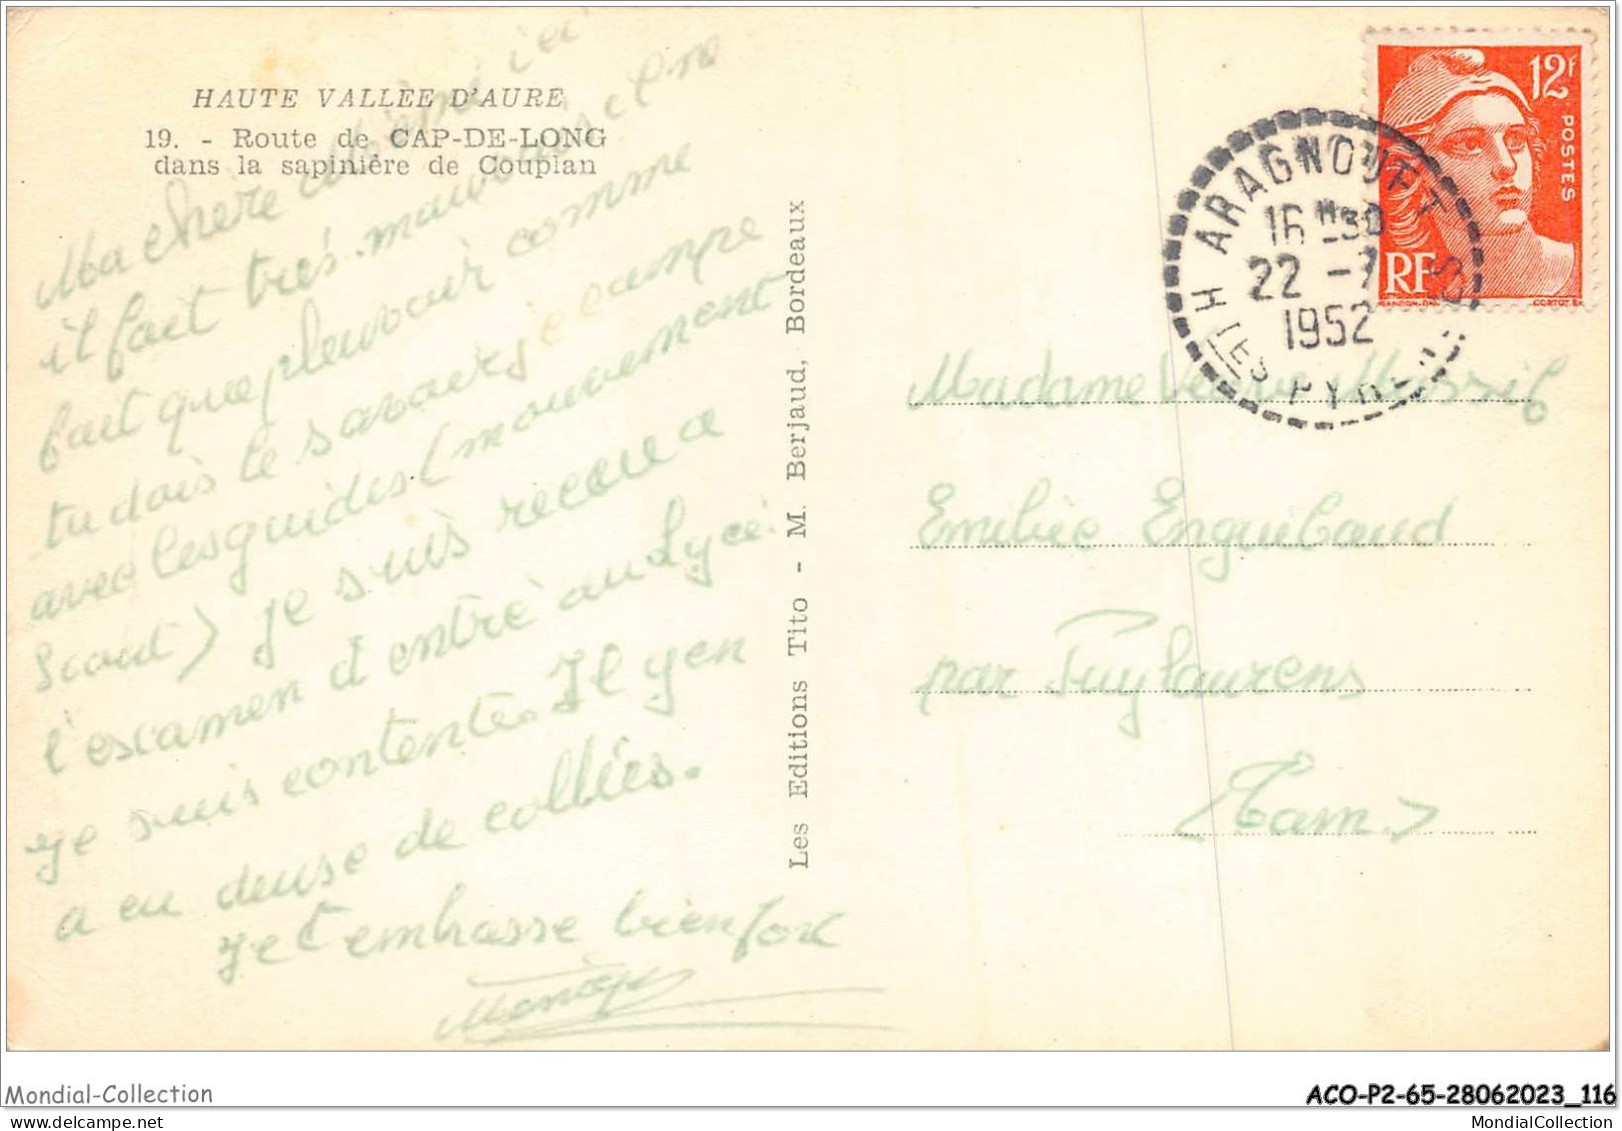 HAUTE VALLÉE D'AURE
19. - Route de CAP-DE-LONG
dans la sapinière de Couplan
Ma chère ici
il fait très mauvais il ne
fait que pleuvoir comme
tu dois le savoir je campe
avec les guides (mouvement
Scout) je suis recue a
l'escamen d'entré au Lycé
je suis contente. Il y en
a eu deuse de collées.
je t'embrasse bien fort
Les Editions Tito - M. Berjaud, Bordeaux
12F
POSTES
RF
ARAGNOUET
16 H 30
22 -7
1952
HTES PYRÉNÉES
Madame Veuve
Emilie Enguibaud
par Puylaurens
(Tarn)
Mondial-Collection
ACO-P2-65-28062023_116
MondialCollection